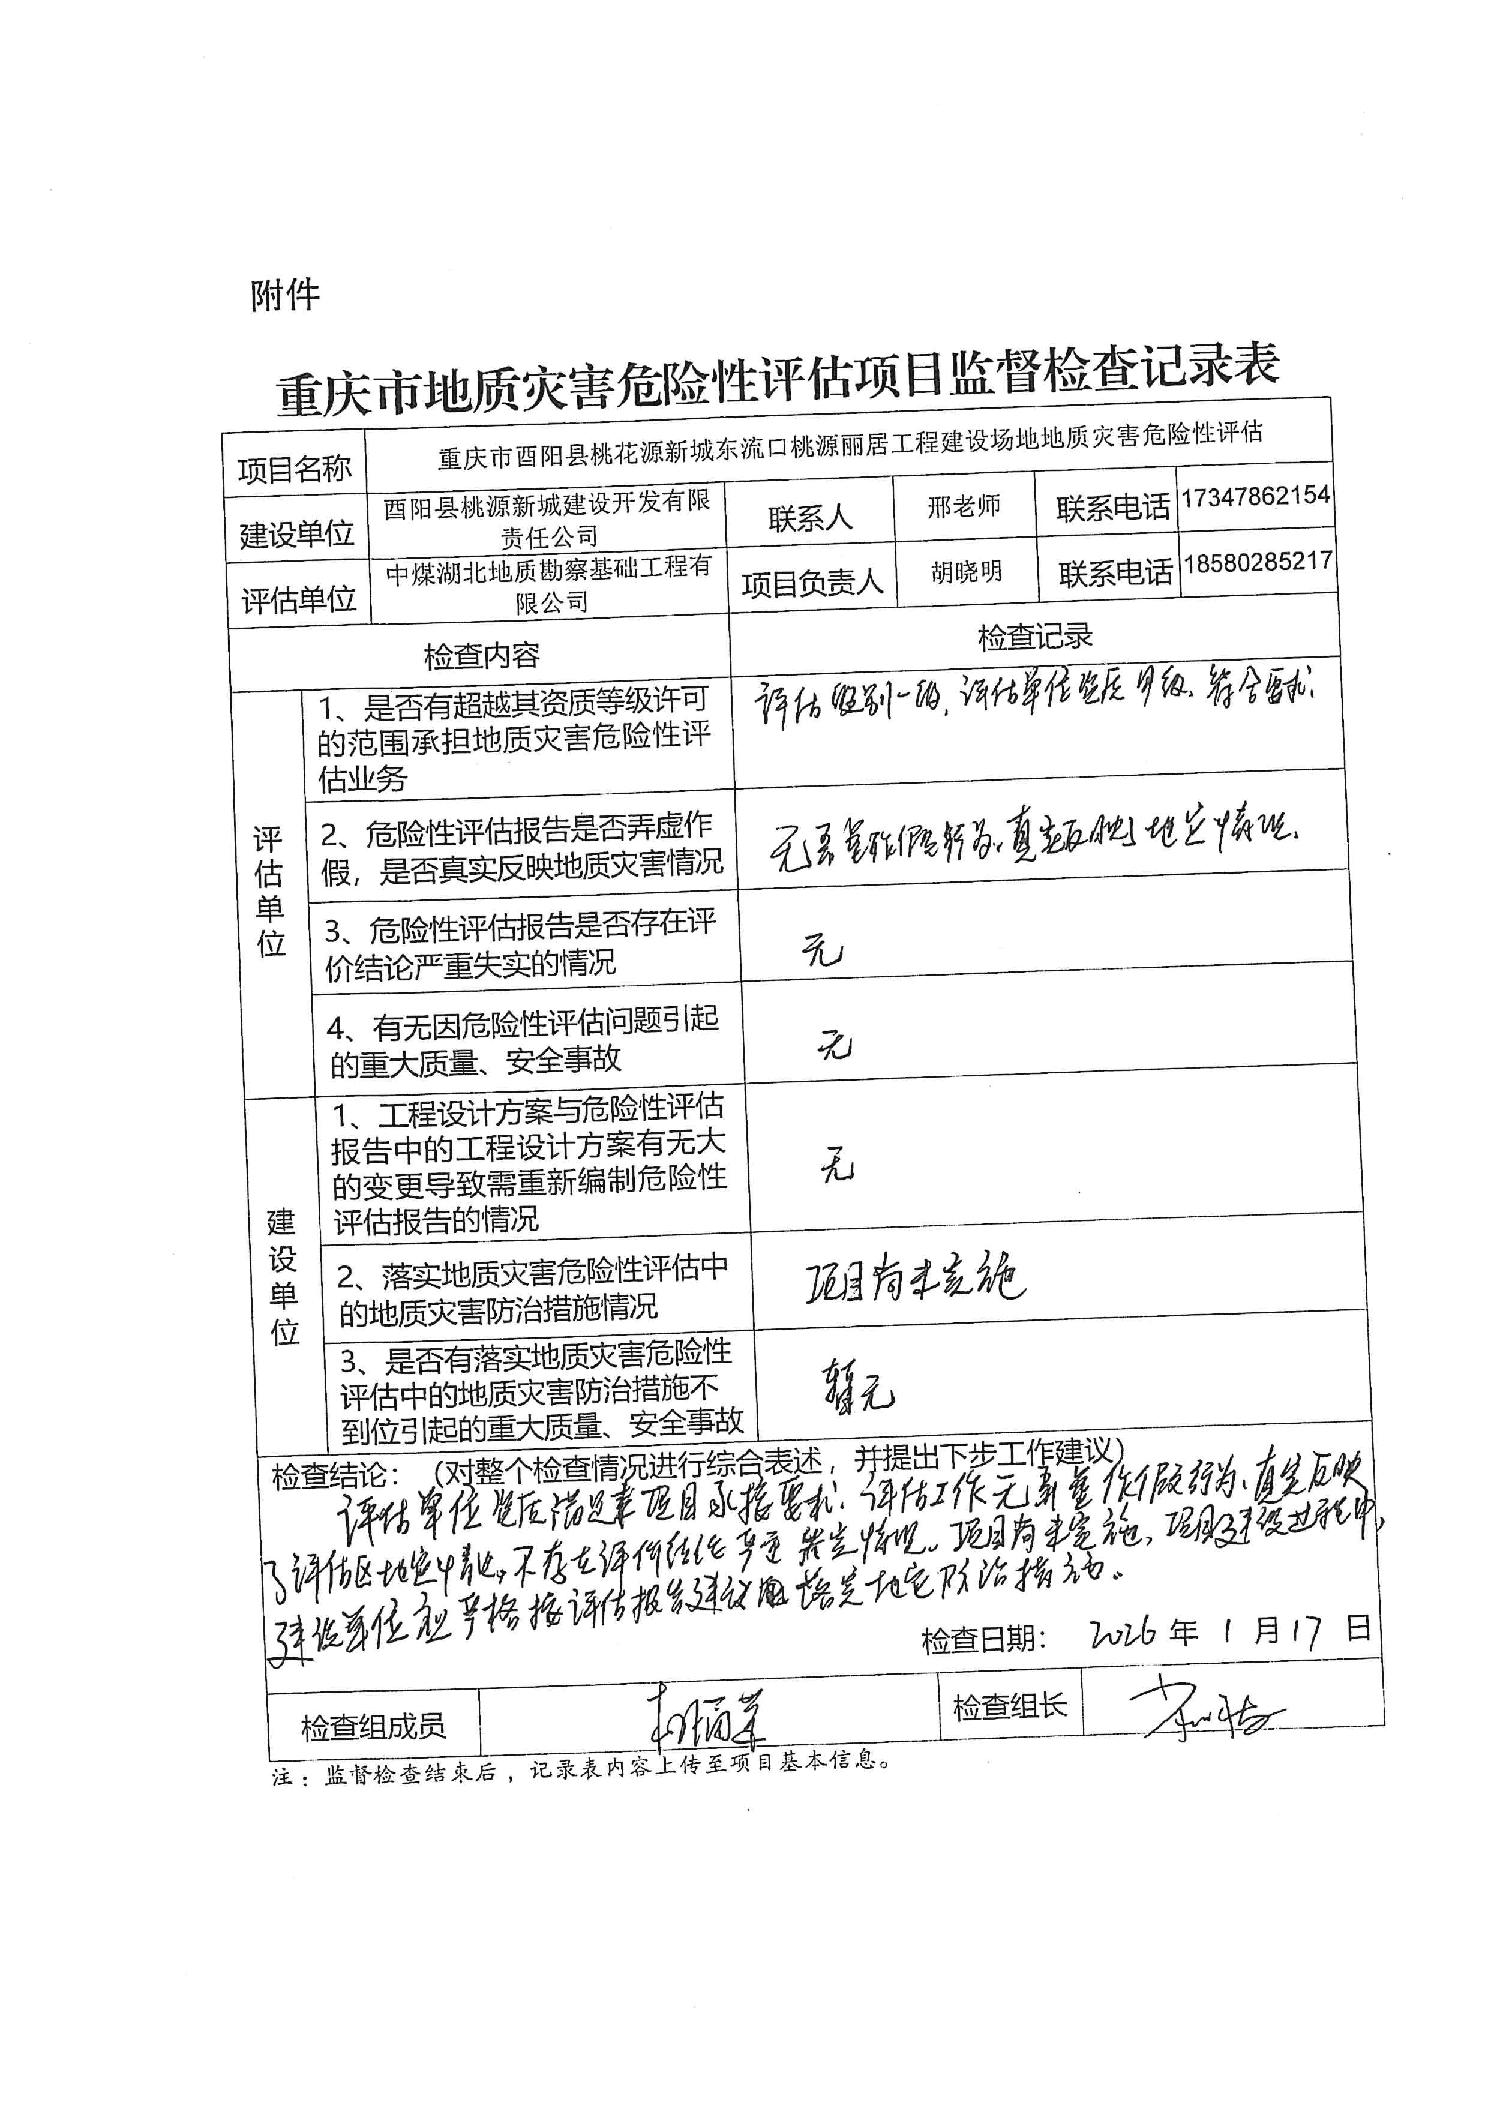 附件
重庆市地质灾害危险性评估项目监督检查记录表
项目名称 重庆市酉阳县桃花源新城东流口桃源丽居工程建设场地地质灾害危险性评估
建设单位 酉阳县桃源新城建设开发有限责任公司 联系人 邢老师 联系电话 17347862154
评估单位 中煤湖北地质勘察基础工程有限公司 项目负责人 胡晓明 联系电话 18580285217
检查内容 检查记录
评估单位
1、是否有超越其资质等级许可
的范围承担地质灾害危险性评
估业务
评估级别一级,评估单位资质甲级,符合要求.
2、危险性评估报告是否弄虚作
假，是否真实反映地质灾害情况
无弄虚作假行为,真实反映了地灾情况.
3、危险性评估报告是否存在评
价结论严重失实的情况
无
4、有无因危险性评估问题引起
的重大质量、安全事故
无
建设单位
1、工程设计方案与危险性评估
报告中的工程设计方案有无大
的变更导致需重新编制危险性
评估报告的情况
无
2、落实地质灾害危险性评估中
的地质灾害防治措施情况
项目尚未实施
3、是否有落实地质灾害危险性
评估中的地质灾害防治措施不
到位引起的重大质量、安全事故
暂无
检查结论：（对整个检查情况进行综合表述，并提出下步工作建议）
评估单位资质满足本项目承接要求.评估工作无弄虚作假行为,真实反映
了评估区地灾情况,不存在评价结论严重失实情况。项目尚未实施,项目建设过程中,
建设单位应严格按评估报告建议落实地灾防治措施。
检查日期： 2026 年 1 月 17 日
检查组成员 检查组长
注：监督检查结束后，记录表内容上传至项目基本信息。